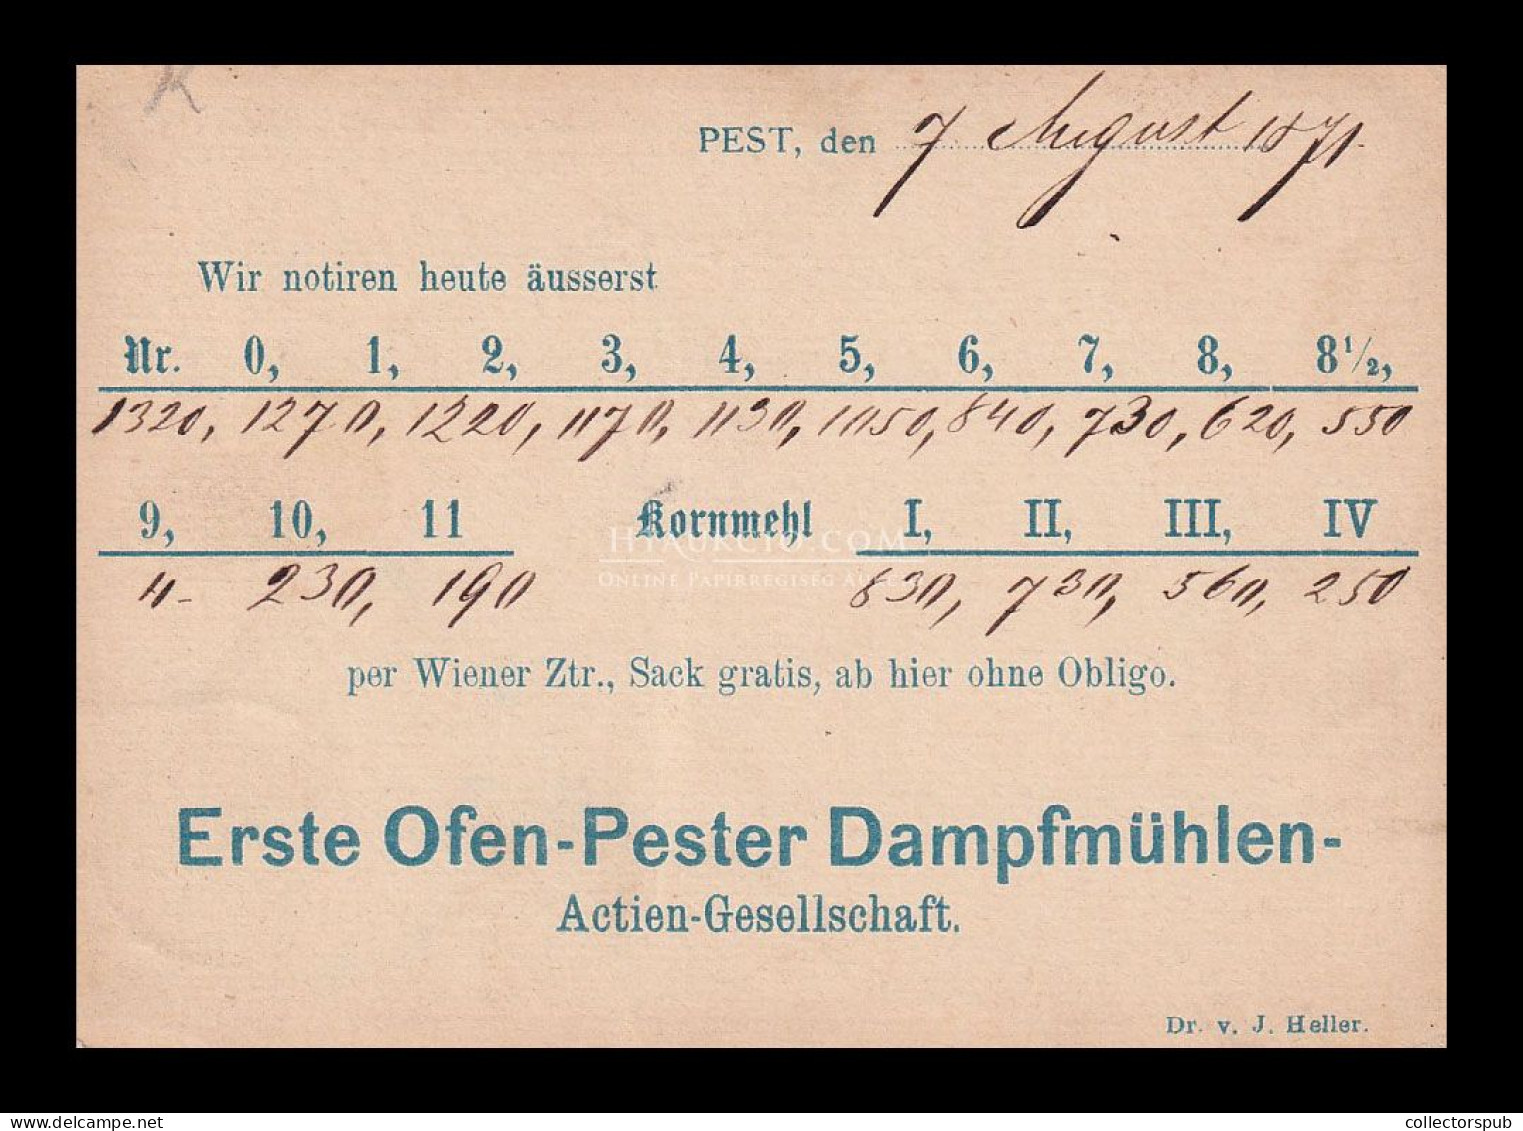 PEST, den 7 August 1871.
Wir notiren heute äusserst
Nr. 0, 1, 2, 3, 4, 5, 6, 7, 8, 8½,
1320, 1270, 1220, 1170, 1130, 1050, 840, 730, 620, 550
9, 10, 11 Kornmehl I, II, III, IV
HÍAUKCIÓ.COM
4- 230, 190 830, 730, 560, 250
per Wiener Ztr., Sack gratis, ab hier ohne Obligo.
Erste Ofen-Pester Dampfmühlen-
Actien-Gesellschaft.
Dr. v. J. Heller.
collectorspub